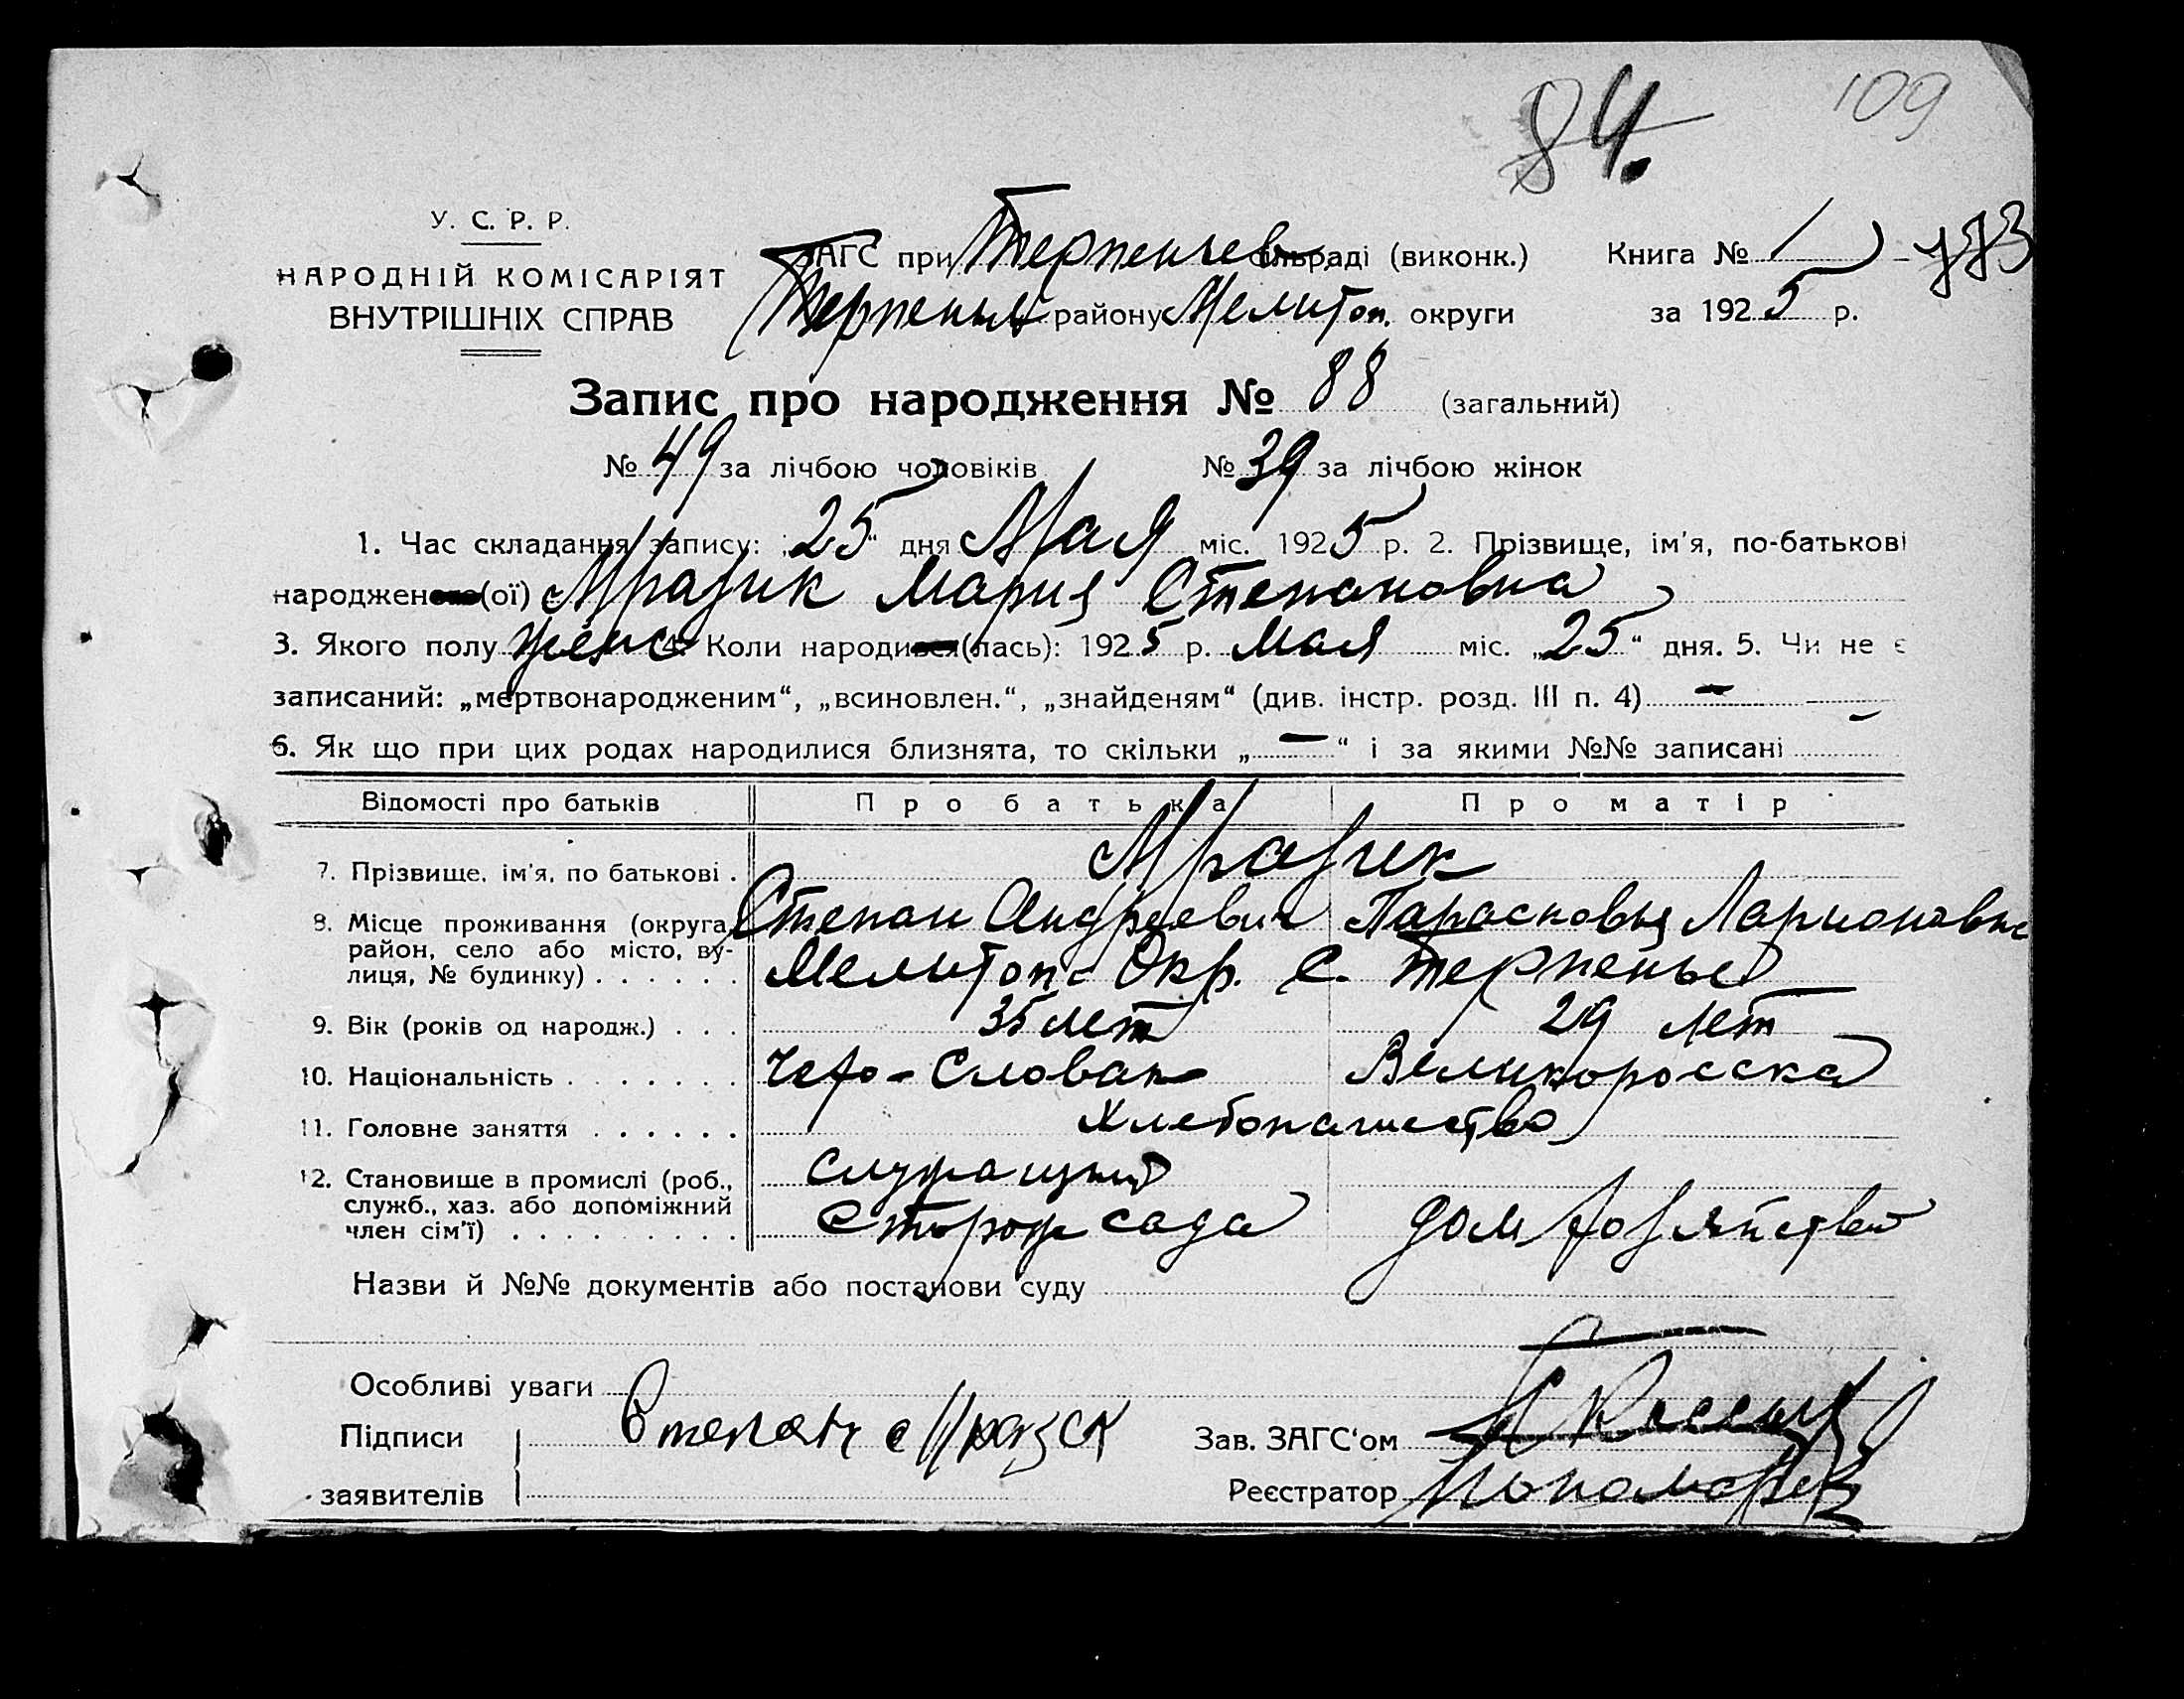 84.
109
У. С. Р. Р.
НАРОДНІЙ КОМІСАРІЯТ
ВНУТРІШНІХ СПРАВ
ЗАГС при Терпеньев сільраді (виконк.) Книга № 1 - 773
Терпеньев району Мелитоп. округи за 1925 р.
Запис про народження № 88 (загальний)
№ 49 за лічбою чоловіків № 39 за лічбою жінок
1. Час складання запису: „25“ дня Мая міс. 1925 р. 2. Прізвище, ім'я, по-батькові
народженого(ої) Мразик Мария Степановна
3. Якого полу женс 4. Коли народився(лась): 1925 р. Мая міс. „25“ дня. 5. Чи не є
записаний: „мертвонародженим“, „всиновлен.“, „знайденям“ (див. інстр. розд. III п. 4) —
6. Як що при цих родах народилися близнята, то скільки „—“ і за якими №№ записані —
Відомості про батьків Про батька Про матір
7. Прізвище, ім'я, по батькові . Мразик
Степан Андреевич Парасковья Ларионовна
8. Місце проживання (округа,
район, село або місто, ву-
лиця, № будинку) . . . . . . Мелитоп. Окр. с. Терпенье
9. Вік (років од народж.) . . . 35 лет 29 лет
10. Національність . . . . . . . Чехо-Словак Великоросска
11. Головне заняття . . . . . . Хлебопашество
12. Становище в промислі (роб.,
служб., хаз. або допоміжний
член сім'ї) . . . . . . . . . служащий
Сторож сада дом хозяйством
Назви й №№ документів або постанови суду
Особливі уваги
Підписи
заявителів
Степан Мразек
Зав. ЗАГС'ом
Реєстратор Пономарев